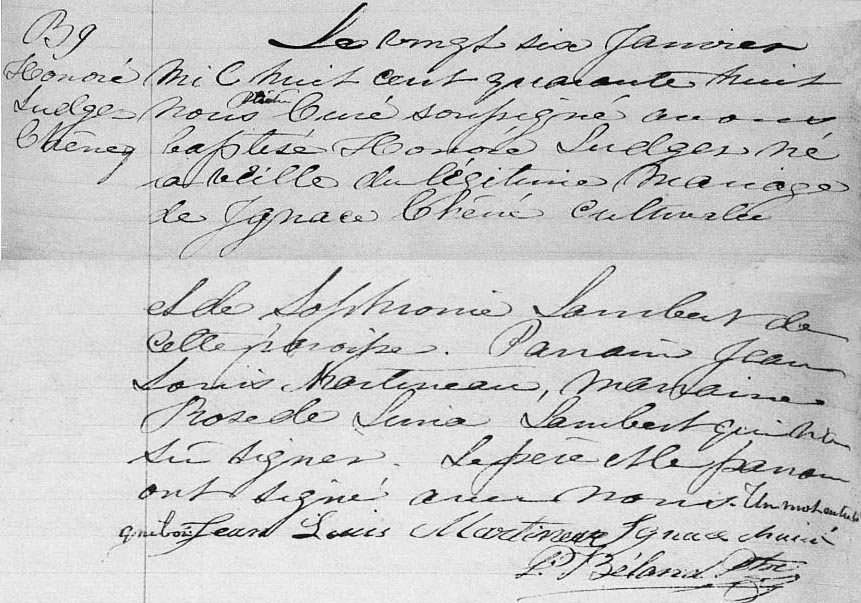 B9
Honoré
Ludger
Chênev
Le vingt six Janvier
mil huit cent quarante huit
nous Prêtre Curé soussigné avons
baptisé Honoré Ludger né
la veille du légitime mariage
de Ignace Chêné Cultivateur
et de Sophronie Lambert de
cette paroisse. Parrain Jean
Louis Martineau, marraine
Rose de Lima Lambert qui n'a
su signer. Le père et le parrain
ont signé avec nous. Un mot entre lig
qui bon Jean Louis Martineau Ignace
P. Béland Ptre